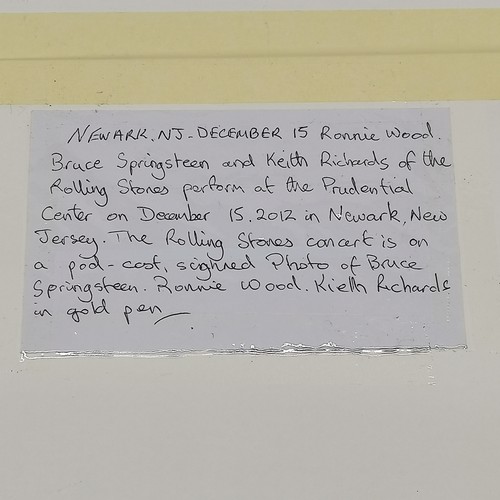 NEWARK, NJ - DECEMBER 15 Ronnie Wood.
Bruce Springsteen and Keith Richards of the
Rolling Stones perform at the Prudential
Center on December 15, 2012 in Newark, New
Jersey. The Rolling Stones concert is on
a pod-cast, sighned Photo of Bruce
Springsteen. Ronnie Wood. Kieth Richards
in gold pen